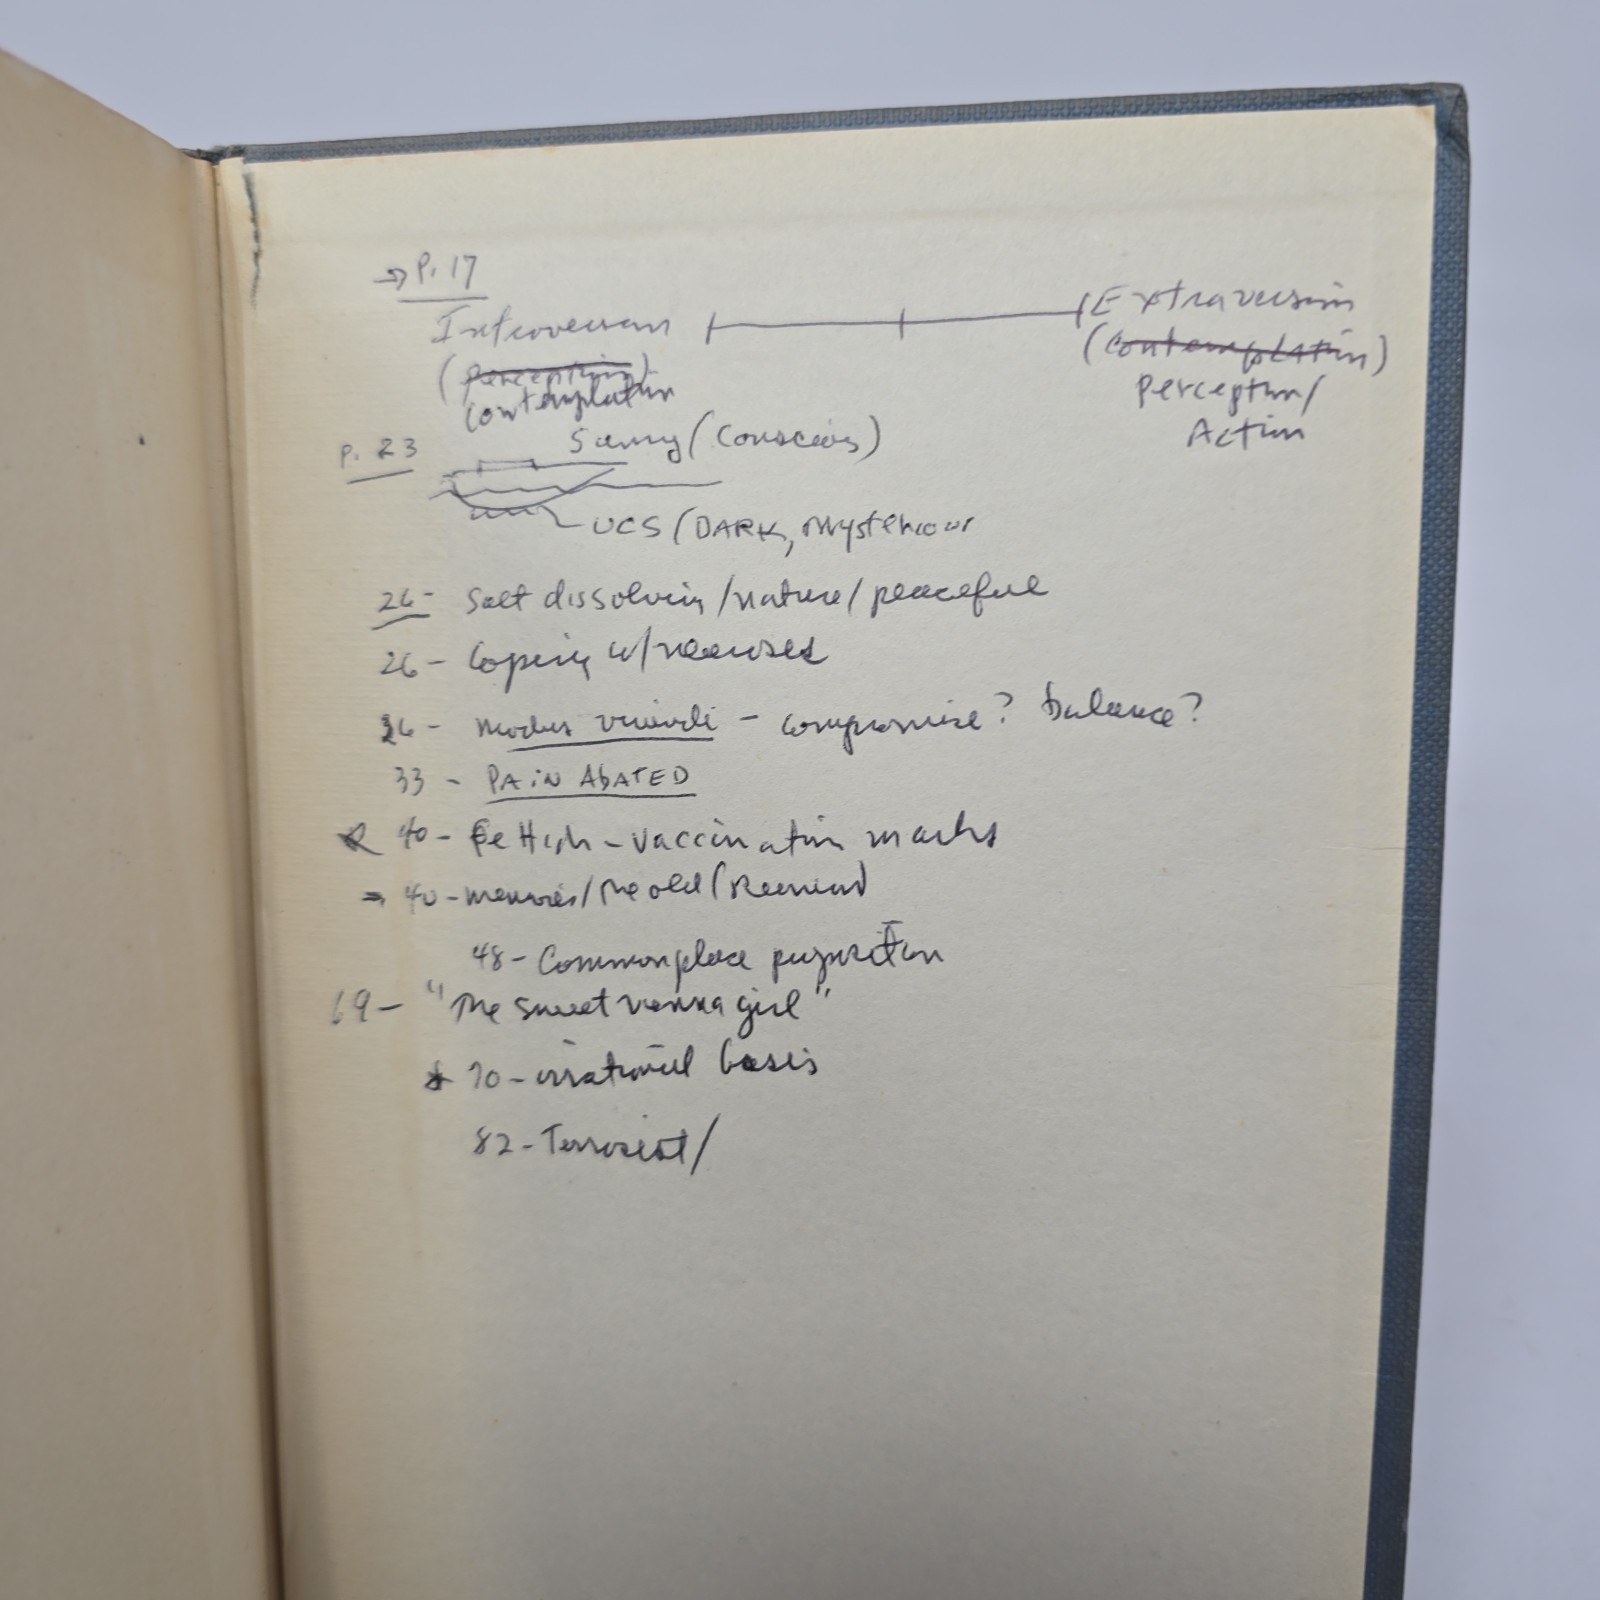 → P. 17
Introversion Extraversion
(perception) (contemplation)
contemplation perception/
Action
p. 23 Sunny (Conscious)
UCS (DARK, mysterious
26- Salt dissolving/nature/peaceful
26- Coping w/
26- modus vivendi - compromise? balance?
33 - PAIN AbATED
40- Be High - vaccination marks
→ 40- memories/the old (
48- Commonplace
69- "The sweet vienna girl"
* 70- irrational basis
82- Terrorist/